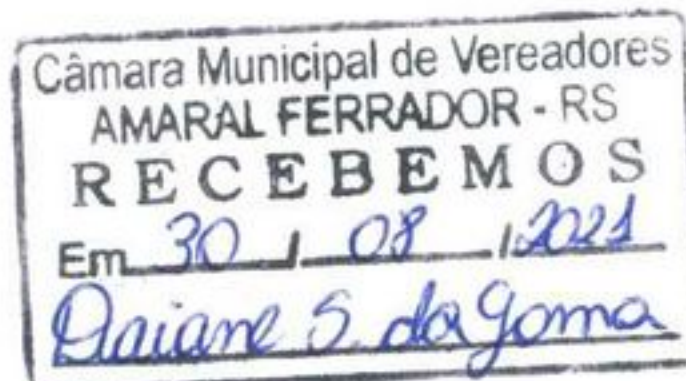 Câmara Municipal de Vereadores
AMARAL FERRADOR - RS
RECEBEMOS
Em 30 / 08 / 2021
Daiane S. da Gama